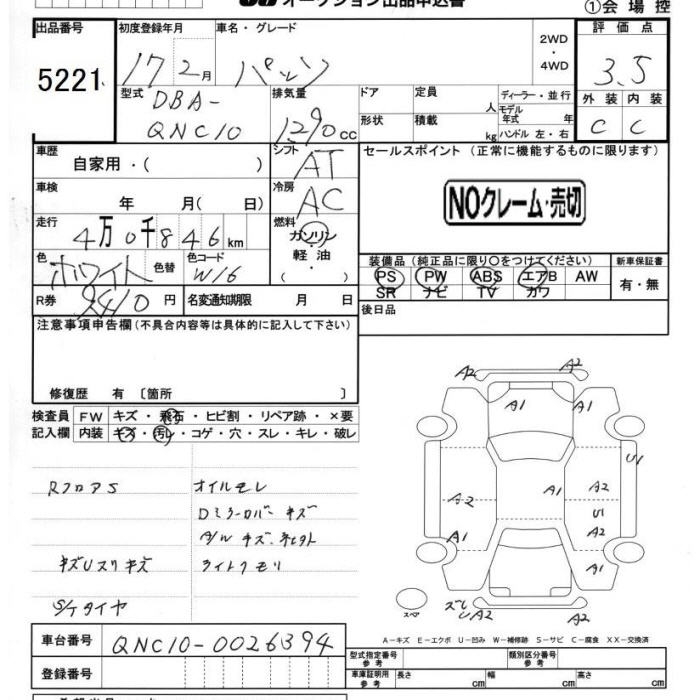 オークション出品申込書
①会場控
出品番号
5221
初度登録年月
17 2月
車名・グレード
パッソ
2WD
・
4WD
評価点
3.5
外装 内装
C C
型式
DBA-
QNC10
排気量
1290cc
ドア
定員 人
ディーラー・並行
モデル
年式 年
形状
積載 kg
ハンドル 左・右
車歴
自家用・( )
シフト
AT
セールスポイント (正常に機能するものに限ります)
NOクレーム・売切
車検
年 月( 日)
冷房
AC
走行
4万0千846km
燃料
ガソリン・
軽油
・( )
色
ホワイト
色替
色コード
W16
装備品 (純正品に限り○をつけてください)
PS PW ABS エアB AW
SR ナビ TV カワ
新車保証書
有・無
R券
9410円
名変通知期限 月 日
後日品
注意事項申告欄(不具合内容等は具体的に記入して下さい)
修復歴 有 〔箇所 〕
検査員
記入欄
FW キズ・飛石・ヒビ割・リペア跡・×要
内装 キズ・汚レ・コゲ・穴・スレ・キレ・破レ
RフロアS
オイルモレ
Dミラーカバー キズ
キズUスリキズ
ライトクモリ
S/Tタイヤ
A2 A2
A1 A1
U1
A2 A1 A2
U1
A2
A1 A1
スペア
U A2 A2
A-キズ E-エクボ U-凹み W-補修跡 S-サビ C-腐食 XX-交換済
車台番号
QNC10-0026394
登録番号
型式指定番号
参考
類別区分番号
参考
車庫証明用
参考
長さ cm
幅 cm
高さ cm